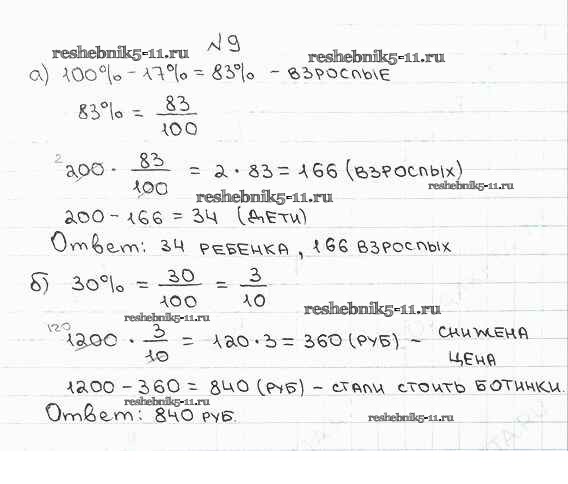 №9
reshebnik5-11.ru reshebnik5-11.ru
а) 100% - 17% = 83% - взрослые
83% = 83/100
2 200 · 83/100 = 2 · 83 = 166 (взрослых)
reshebnik5-11.ru reshebnik5-11.ru
200 - 166 = 34 (дети)
Ответ: 34 ребенка, 166 взрослых
б) 30% = 30/100 = 3/10
reshebnik5-11.ru reshebnik5-11.ru
120 1200 · 3/10 = 120 · 3 = 360 (руб) - снижена цена
1200 - 360 = 840 (руб) - стали стоить ботинки.
reshebnik5-11.ru
Ответ: 840 руб.
reshebnik5-11.ru